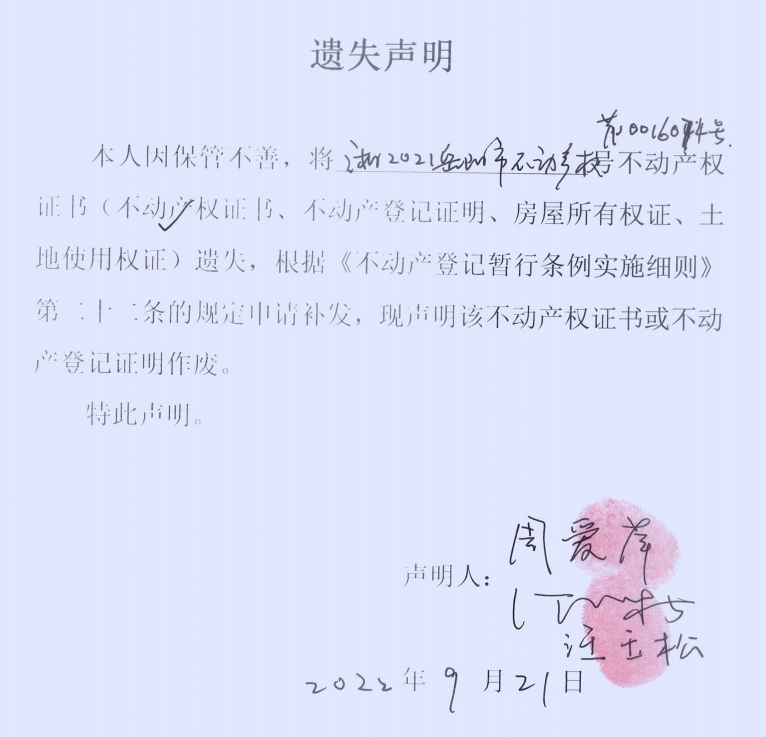 遗失声明
第0016074号
本人因保管不善，将湘2021岳阳市不动产权号不动产权
证书（不动产权证书、不动产登记证明、房屋所有权证、土
地使用权证）遗失，根据《不动产登记暂行条例实施细则》
第二十二条的规定申请补发，现声明该不动产权证书或不动
产登记证明作废。
特此声明。
周爱萍
声明人：
汪玉松
2022年9月21日